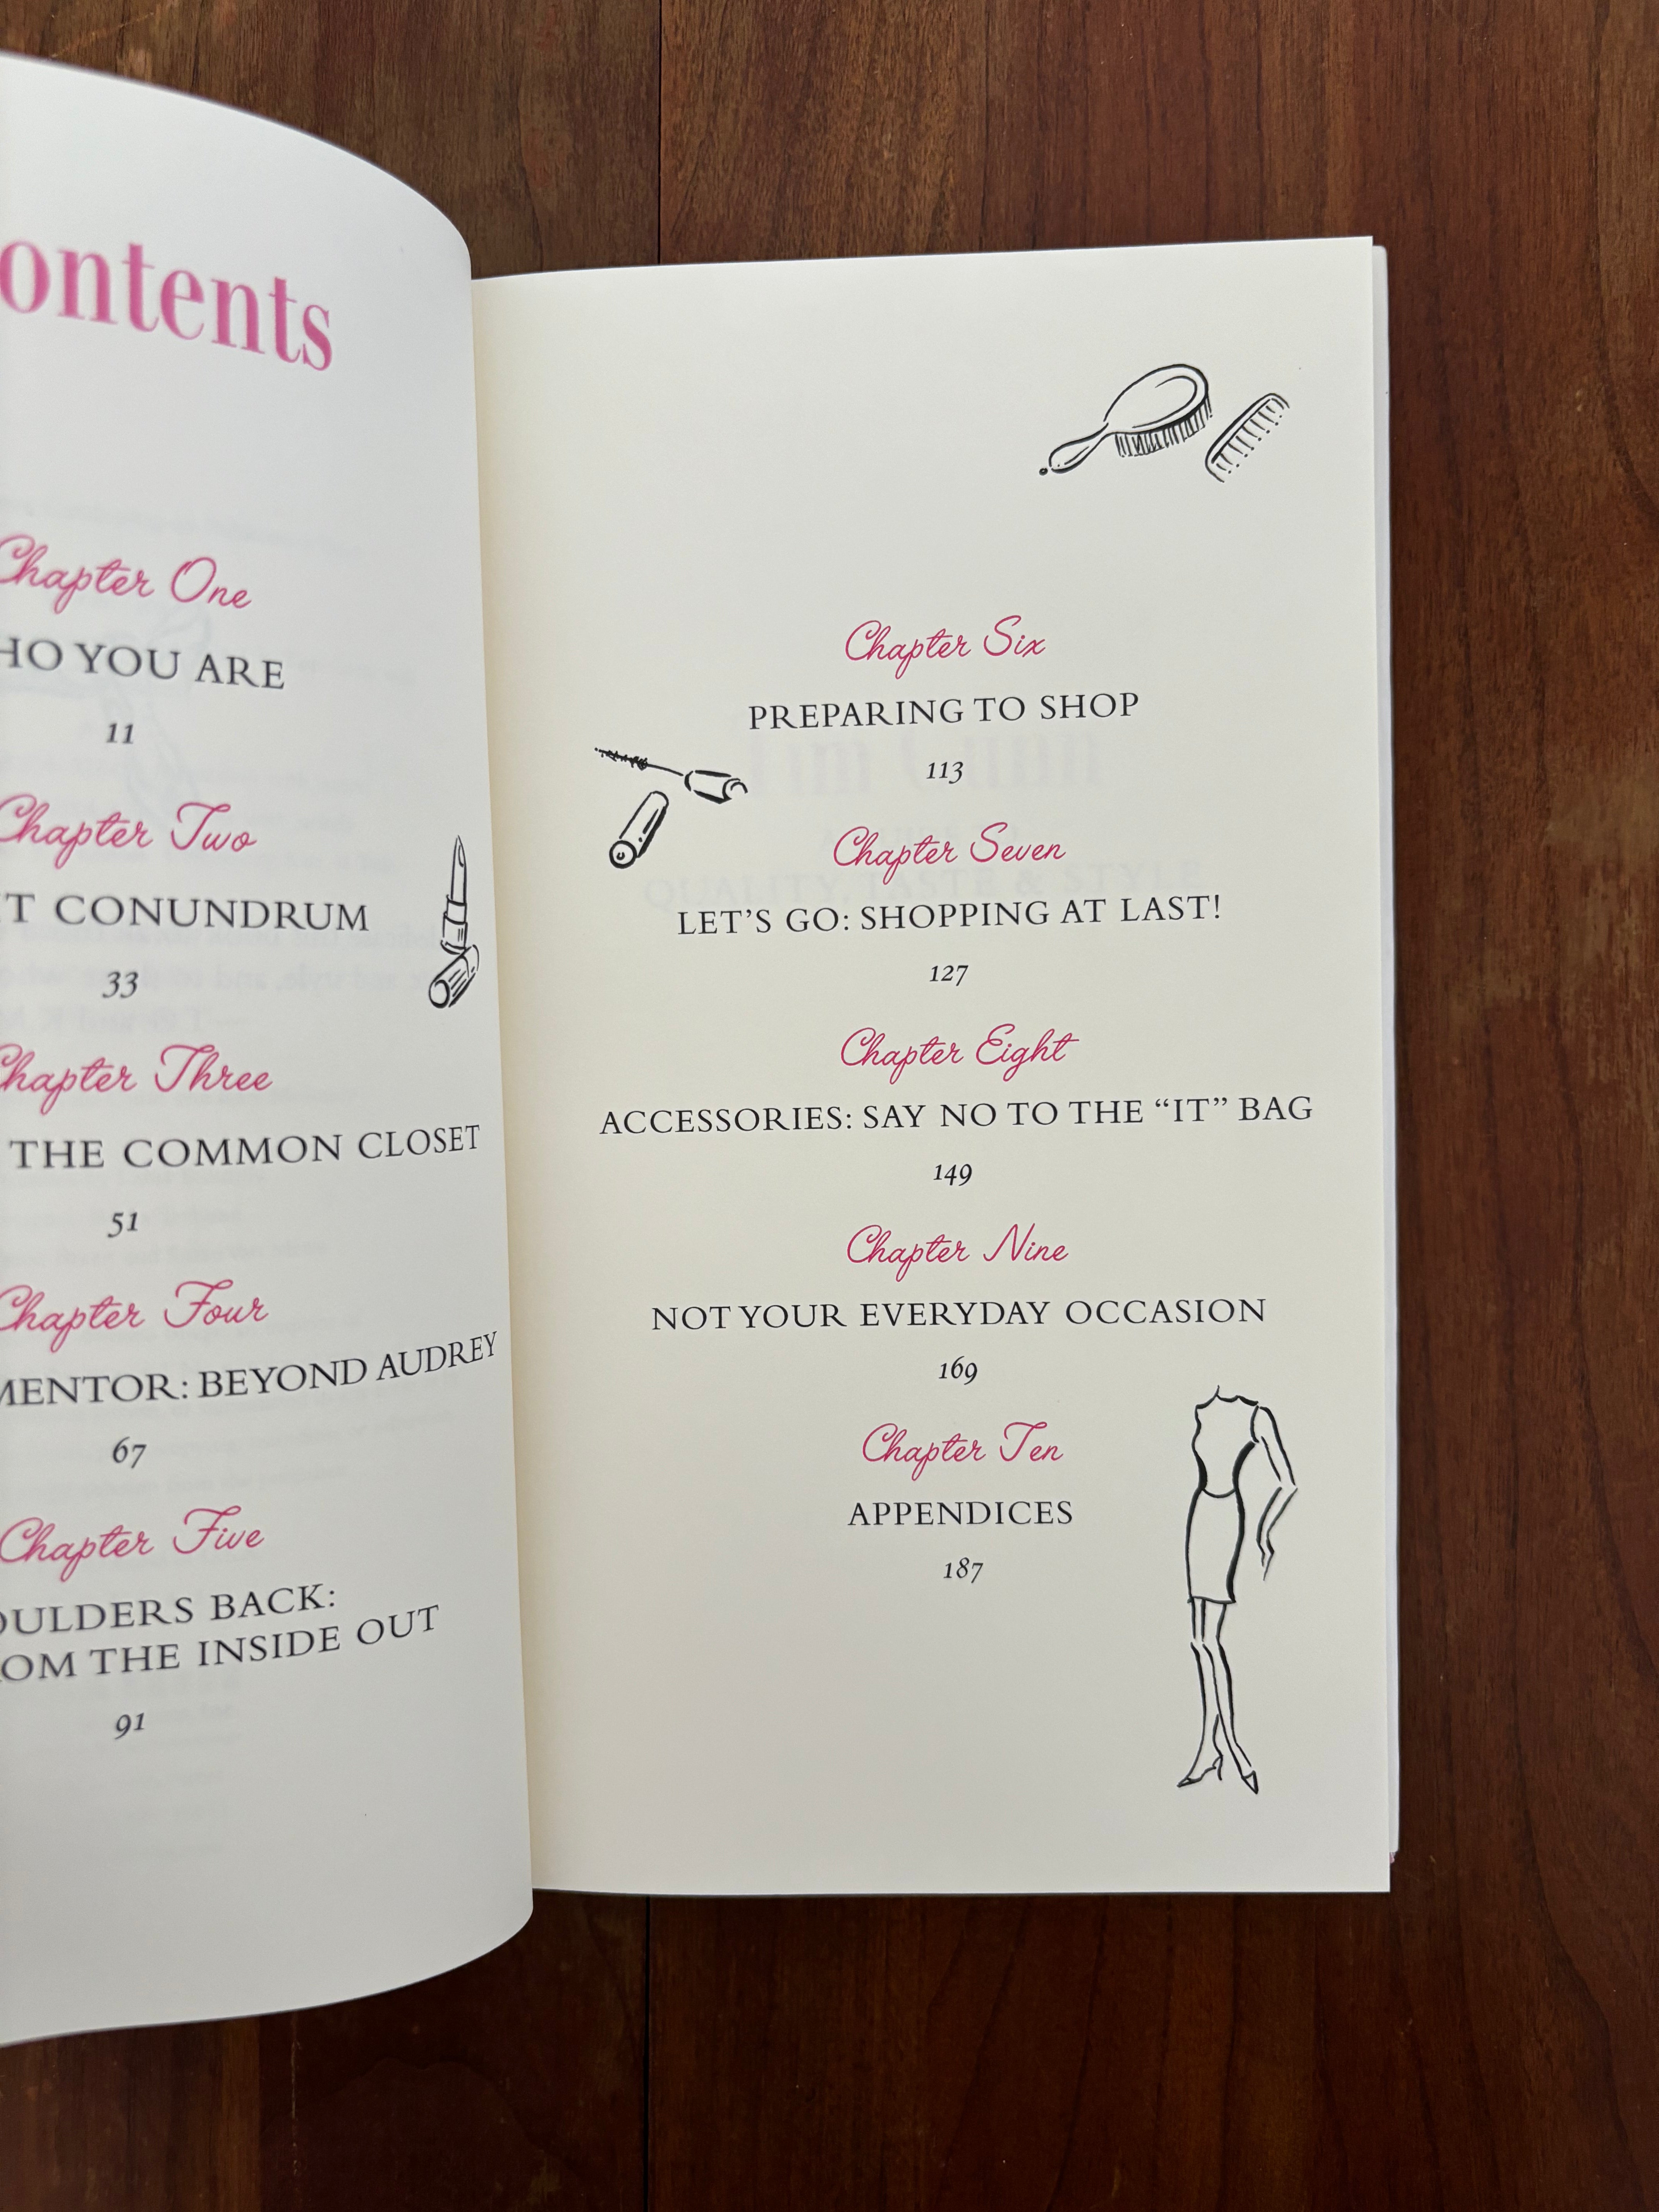 ontents
Chapter One
HO YOU ARE
11
Chapter Two
T CONUNDRUM
33
Chapter Three
THE COMMON CLOSET
51
Chapter Four
MENTOR: BEYOND AUDREY
67
Chapter Five
OULDERS BACK:
OM THE INSIDE OUT
91
Chapter Six
PREPARING TO SHOP
113
Chapter Seven
LET’S GO: SHOPPING AT LAST!
127
Chapter Eight
ACCESSORIES: SAY NO TO THE “IT” BAG
149
Chapter Nine
NOT YOUR EVERYDAY OCCASION
169
Chapter Ten
APPENDICES
187
Tim Gunn
QUALITY, TASTE & STYLE